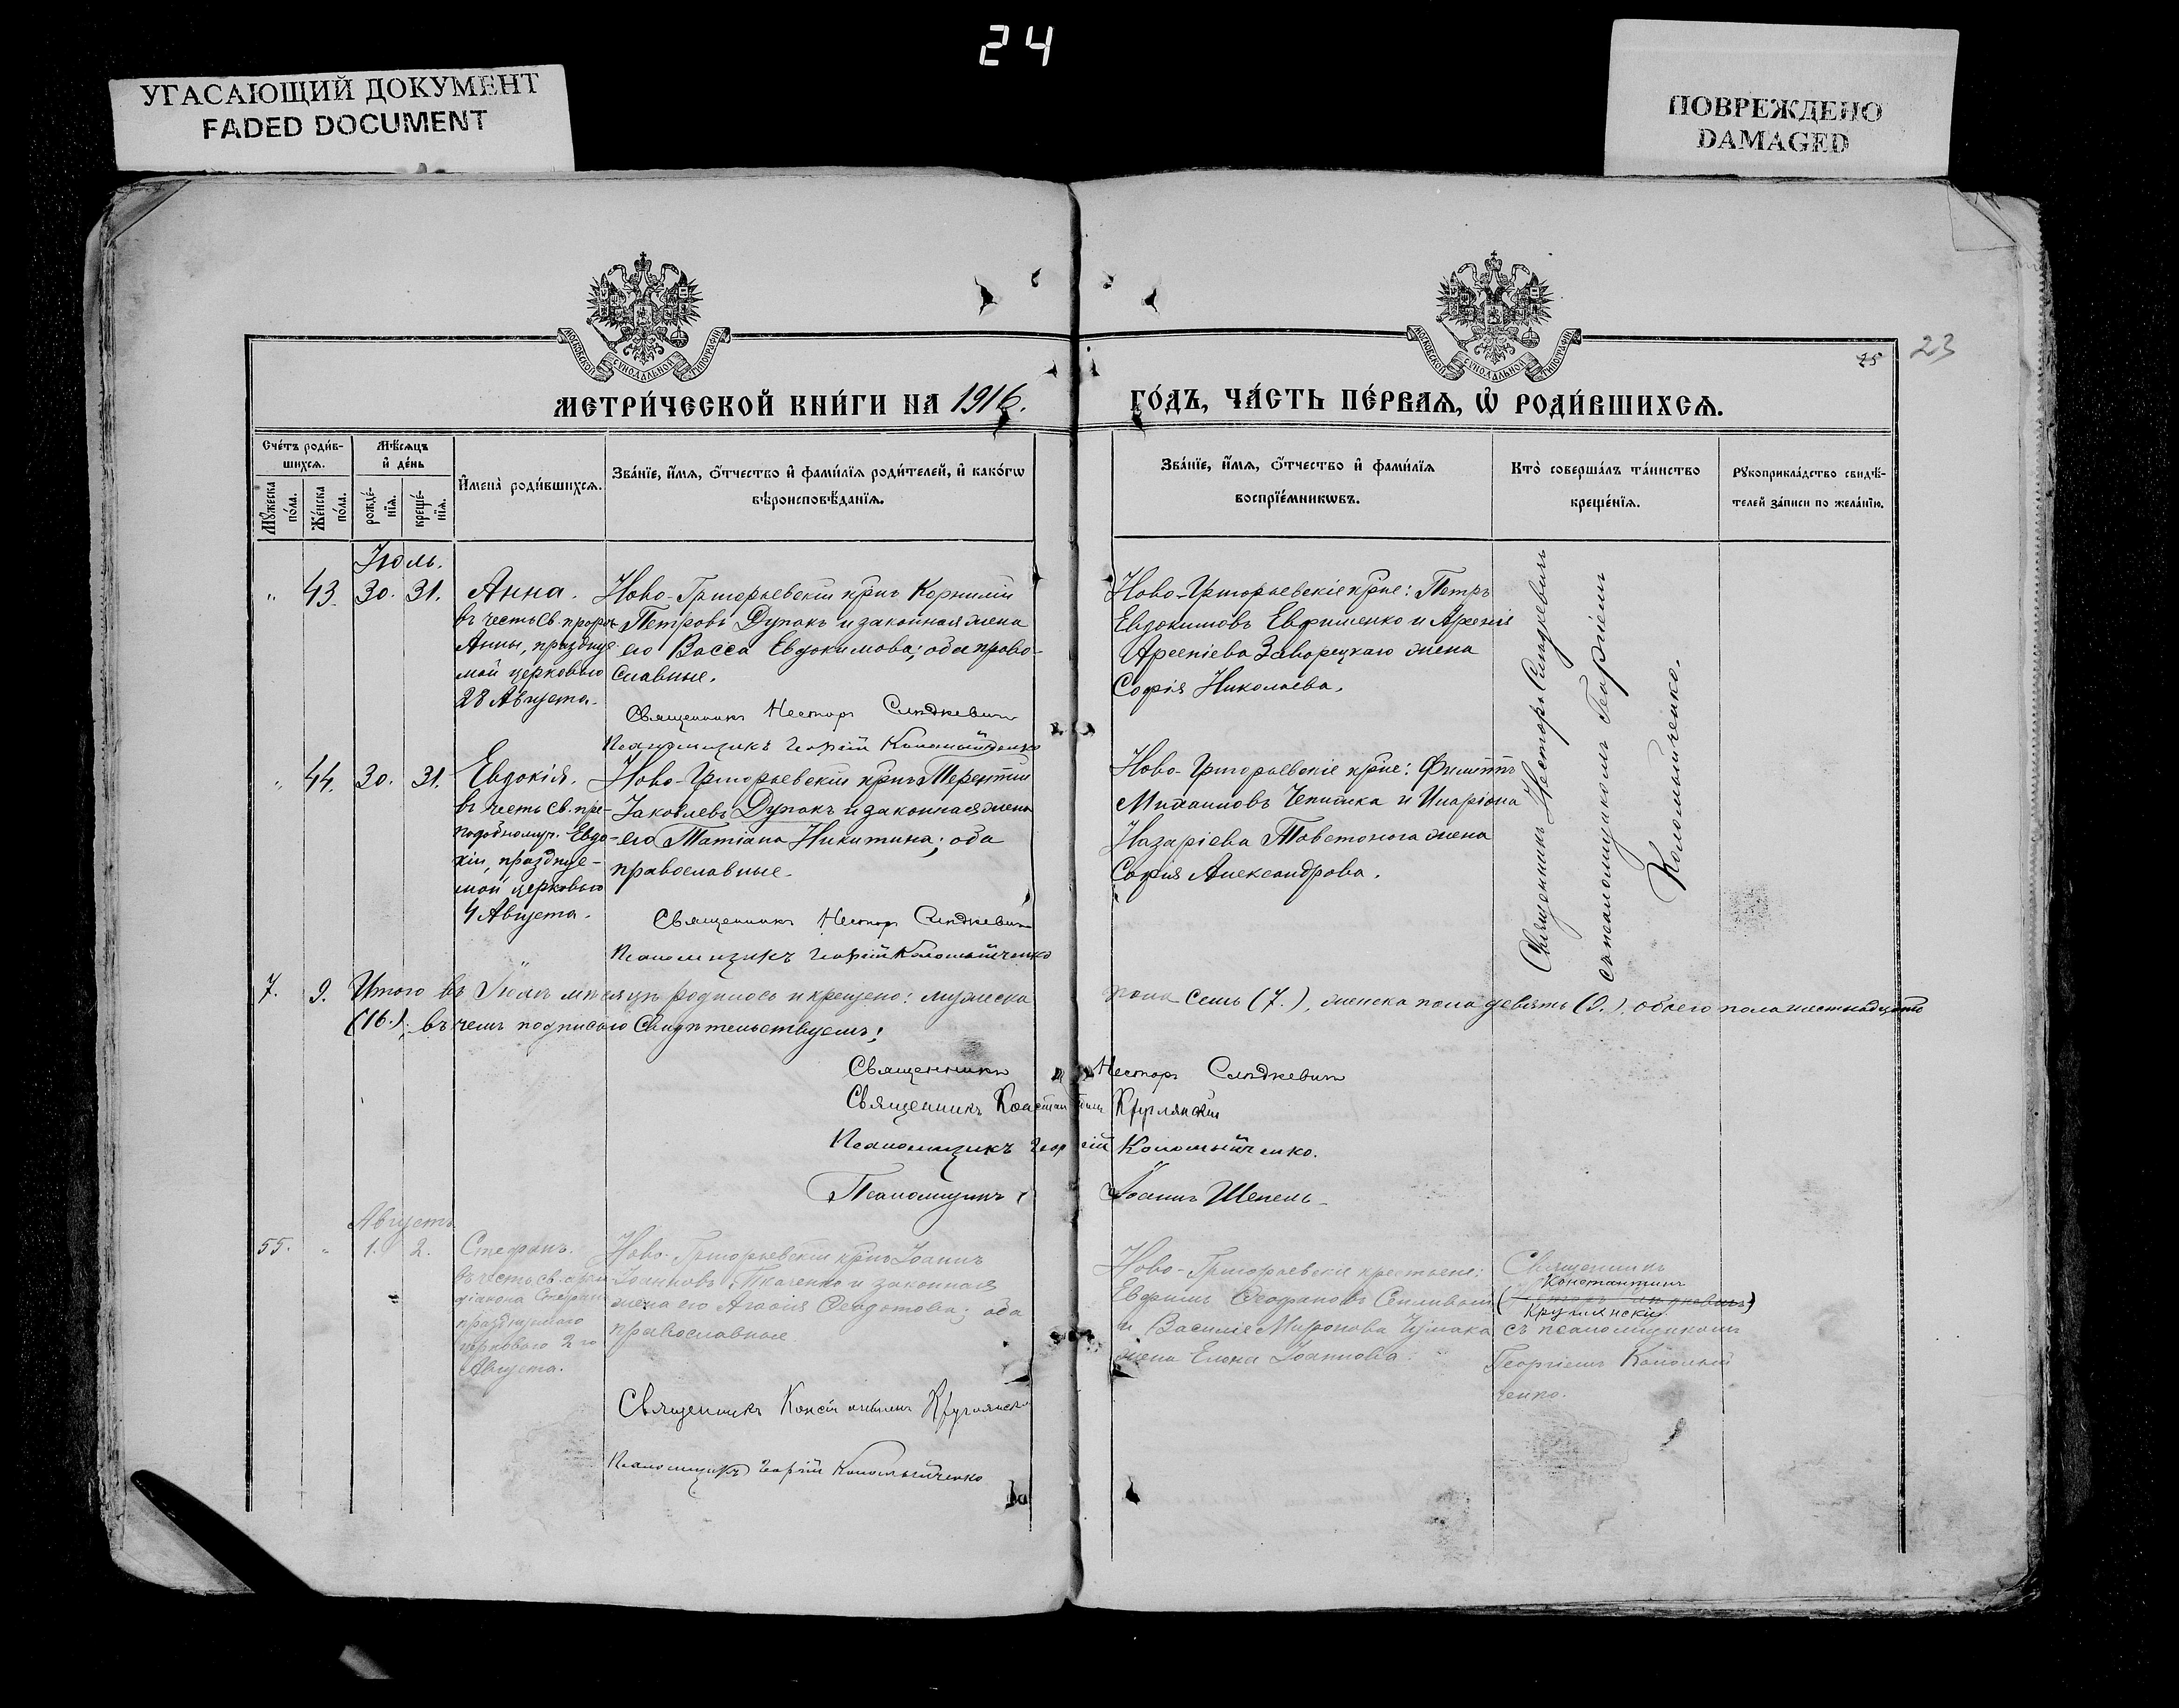 24
УГАСАЮЩИЙ ДОКУМЕНТ
FADED DOCUMENT
ПОВРЕЖДЕНО
DAMAGED
МОСКОВСКОЙ СѴНОДАЛЬНОЙ ТИПОГРАФІИ
МОСКОВСКОЙ СѴНОДАЛЬНОЙ ТИПОГРАФІИ
75
23
МЕТРИ́ЧЕСКОЙ КНИ́ГИ НА 1916. ГО́ДЪ, ЧА́СТЬ ПЕ́РВАѦ, Ѡ РОДИ́ВШИХСѦ.
Сче́тъ роди́в-
шихсѧ.
Мꙋ́жеска по́ла.
Же́нска по́ла.
Мѣ́сѧцъ
и҆ де́нь
рожде́-
нїѧ.
креще́-
нїѧ.
И҆мена̀ роди́вшихсѧ.
Зва́нїе, и҆́мѧ, ѻ҆́тчество и҆ фами́лїѧ роди́телей, и҆ како́гѡ
вѣроисповѣ́данїѧ.
Зва́нїе, и҆́мѧ, ѻ҆́тчество и҆ фами́лїѧ
воспрїе́мникѡвъ.
Кто̀ соверша́лъ та́инство
креще́нїѧ.
Рꙋкоприкла́дство свидѣ́-
телей за́писи по жела́нїю.
Іюль.
" 43. 30. 31. Анна.
въ честь св. прор.
Анны, праздну-
мой церковью
28 Августа.
Ново-Григорьевскій кр-нъ Корнилій
Петровъ Дупакъ и законная жена
его Васса Евдокимова; оба право-
славные.
Священникъ Несторъ Слюдкевичъ
Псаломщикъ Георгій Коломыйченко
Ново-Григорьевскіе кр-не: Петръ
Евдокимовъ Евфименко и Арсенія
Арсеніева Заворецкаго жена
Софія Николаева.
Священникъ Несторъ Слюдкевичъ
съ псаломщикомъ Георгіемъ
Коломыйченко.
" 44. 30. 31. Евдокія.
въ честь св. пре-
подобномуч. Евдо-
кіи, праздnуе-
мой церковью
4 Августа.
Ново-Григорьевскій кр-нъ Терентій
Іаковлевъ Дупакъ и законная жена
его Татіана Никитина; оба
православные.
Священникъ Несторъ Слюдкевичъ
Псаломщикъ Георгій Коломыйченко
Ново-Григорьевскіе кр-не: Филиппъ
Михаиловъ Чепижка и Иларіона
Назаріева Товстонога жена
Софія Александрова.
7. 9. Итого въ Іюлѣ мѣсяцѣ родилось и крещено: мужеска пола семь (7.), женска пола девять (9.), обоего пола шестнадцать
(16.), въ чемъ подписью свидѣтельствуемъ:
Священникъ Несторъ Слюдкевичъ
Священникъ Константинъ Круглянскій
Псаломщикъ Георгій Коломыйченко.
Псаломщикъ Іоаннъ Шепель
Августъ
55. " 1. 2. Стефанъ.
въ честь св. архи-
діакона Стефана
празднуемаго
церковью 2го
Августа.
Ново-Григорьевскій кр-нъ Іоаннъ
Іоанновъ Ткаченко и законная
жена его Агафія Ѳеодотова; оба
православные.
Священникъ Константинъ Круглянскій
Псаломщикъ Георгій Коломыйченко
Ново-Григорьевскіе крестьяне:
Евфимъ Ѳеофановъ
и Василія Миронова Чумака
жена Елена Іоаннова.
Священникъ
Константинъ
Круглянскій
съ псаломщикомъ
Георгіемъ Коломый
ченко.